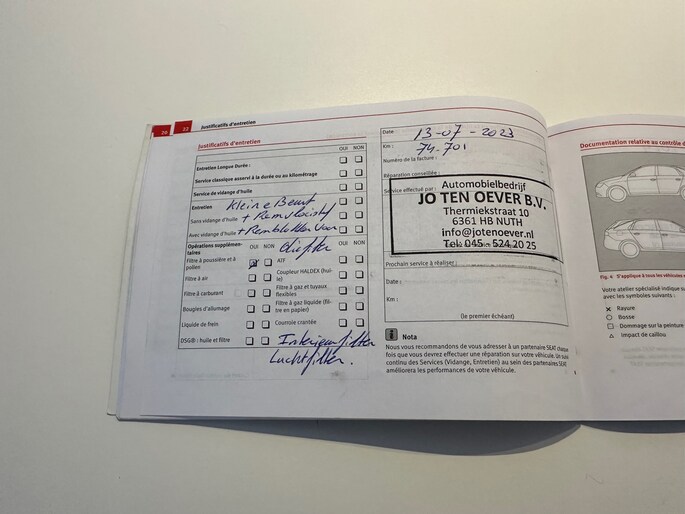 20 22 Justificatifs d'entretien
Justificatifs d'entretien
OUI NON
Entretien Longue Durée :
Service classique asservi à la durée ou au kilométrage
Service de vidange d'huile
Entretien Kleine Beurt
Sans vidange d'huile + Remvloeistof
Avec vidange d'huile + Remblokken voor
Opérations supplémen-
taires
OUI NON OUI NON
Filtre à poussière et à
pollen
ATF
Filtre à air
Coupleur HALDEX (hui-
le)
Filtre à carburant
Filtre à gaz et tuyaux
flexibles
Bougies d'allumage
Filtre à gaz liquide (fil-
tre en papier)
Liquide de frein
Courroie crantée
DSG® : huile et filtre
Interieurfilter
Luchtfilter.
Date : 13-07-2023
Km : 74.701
Numéro de la facture :
Réparation conseillée :
Service effectué par :
Automobielbedrijf
JO TEN OEVER B.V.
Thermiekstraat 10
6361 HB NUTH
info@jotenoever.nl
Tel: 045 - 524 20 25
Prochain service à réaliser :
Date :
Km :
(le premier échéant)
Nota
Nous vous recommandons de vous adresser à un partenaire SEAT chaque
fois que vous devrez effectuer une réparation sur votre véhicule. Un suivi
continu des Services (Vidange, Entretien) au sein des partenaires SEAT
améliorera les performances de votre véhicule.
Documentation relative au contrôle d
Fig. 4 S'applique à tous les véhicules
Votre atelier spécialisé indique su
avec les symboles suivants :
Rayure
Bosse
Dommage sur la peinture
Impact de caillou